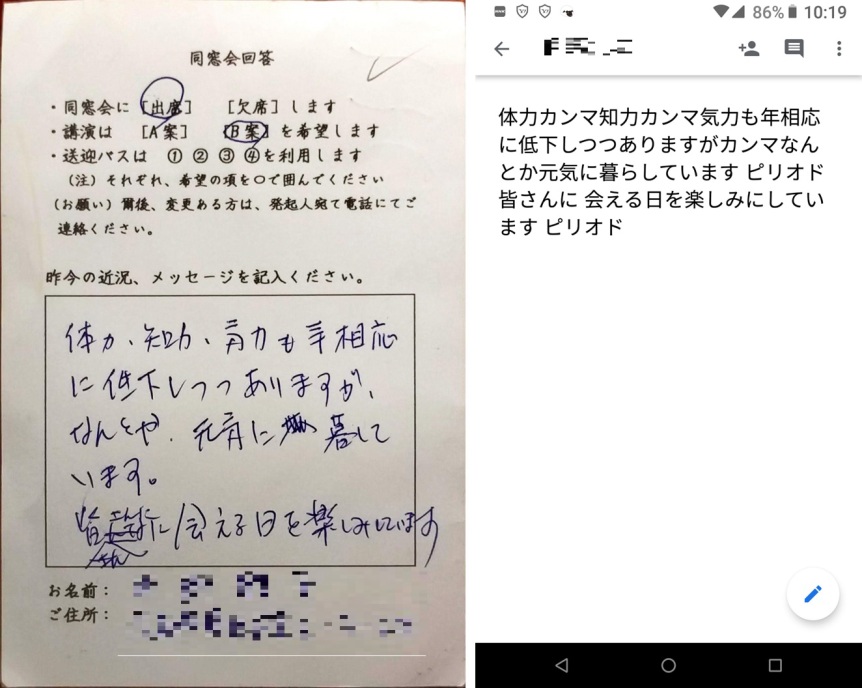 同窓会回答
・同窓会に [出席] [欠席] します
・講演は [A案] [B案] を希望します
・送迎バスは ① ② ③ ④を利用します
(注) それぞれ、希望の項を〇で囲んでください
(お願い) 爾後、変更ある方は、発起人宛て電話にてご
連絡ください。
昨今の近況、メッセージを記入ください。
体力、知力、気力も年相応
に低下しつつありますが、
なんとか、元気に暮して
います。
皆さんに会える日を楽しみにしています
お名前：
ご住所：
86% 10:19
体力カンマ知力カンマ気力も年相応
に低下しつつありますがカンマなん
とか元気に暮らしています ピリオド
皆さんに 会える日を楽しみにしてい
ます ピリオド